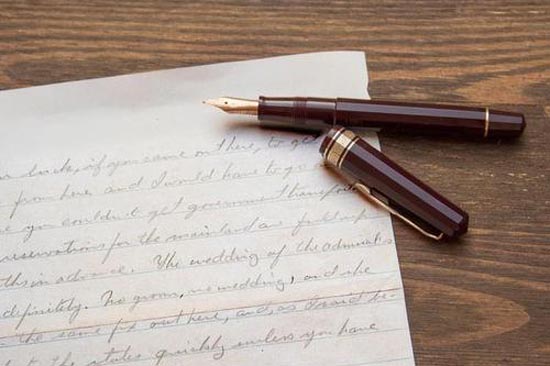 back, if you came out here, to get
from here and I would have to go
you couldn't get government transporta
reservations for the mainland are full up
ths in advance. The wedding of the admiral's
definitely. No groom, no wedding, and she
the same fix out here, and as I said be-
the states quickly unless you have